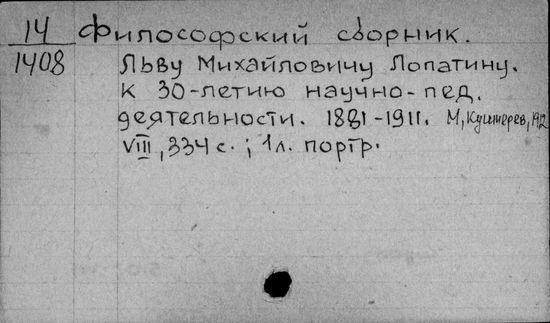 14 Философский сборник.
1408 Льву Михайловичу Лопатину.
К 30-летию научно-пед.
деятельности. 1881-1911. М, Кушнерев, 1912
VIII, 334 с. ; 1 л. портр.